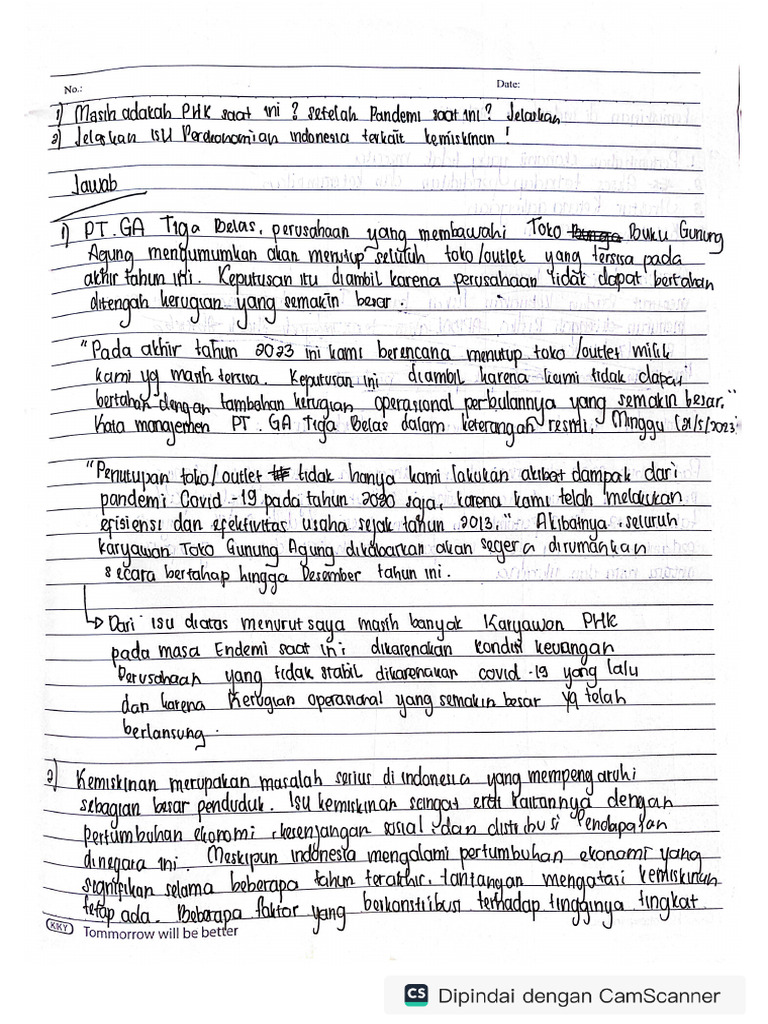 No.:
Date:
1) Masih adakah PHK saat ini ? setelah Pandemi saat ini ? Jelaskan
2) Jelaskan isu Perekonomian indonesia terkait kemiskinan !
Jawab
1) PT. GA Tiga Belas, perusahaan yang membawahi Toko Buku Gunung
Agung mengumumkan akan menutup seluruh toko/outlet yang tersisa pada
akhir tahun ini. Keputusan itu diambil karena perusahaan tidak dapat bertahan
ditengah kerugian yang semakin besar.
"Pada akhir tahun 2023 ini kami berencana menutup toko/outlet milik
kami yg masih tersisa. Keputusan ini diambil karena kami tidak dapat
bertahan dengan tambahan kerugian operasional perbulannya yang semakin besar."
kata manajemen PT. GA Tiga Belas dalam keterangan resmi, Minggu (21/5/2023
"Penutupan toko/outlet tidak hanya kami lakukan akibat dampak dari
pandemi Covid-19 pada tahun 2020 saja, karena kami telah melakukan
efisiensi dan efektivitas usaha sejak tahun 2013." Akibatnya, seluruh
karyawan Toko Gunung Agung dikabarkan akan segera dirumahkan
secara bertahap hingga Desember tahun ini.
Dari isu diatas menurut saya masih banyak Karyawan PHK
pada masa Endemi saat ini dikarenakan kondisi keuangan
Perusahaan yang tidak stabil dikarenakan covid-19 yang lalu
dan karena Kerugian operasional yang semakin besar yg telah
berlansung.
2) Kemiskinan merupakan masalah serius di indonesia yang mempengaruhi
sebagian besar penduduk. Isu kemiskinan sangat erat kaitannya dengan
pertumbuhan ekonomi, kesenjangan sosial, dan distribusi Pendapatan
dinegara ini. Meskipun indonesia mengalami pertumbuhan ekonomi yang
signifikan selama beberapa tahun terakhir, tantangan mengatasi kemiskinan
tetap ada. Beberapa faktor yang berkonstribusi terhadap tingginya tingkat
KKY Tommorrow will be better
CS Dipindai dengan CamScanner